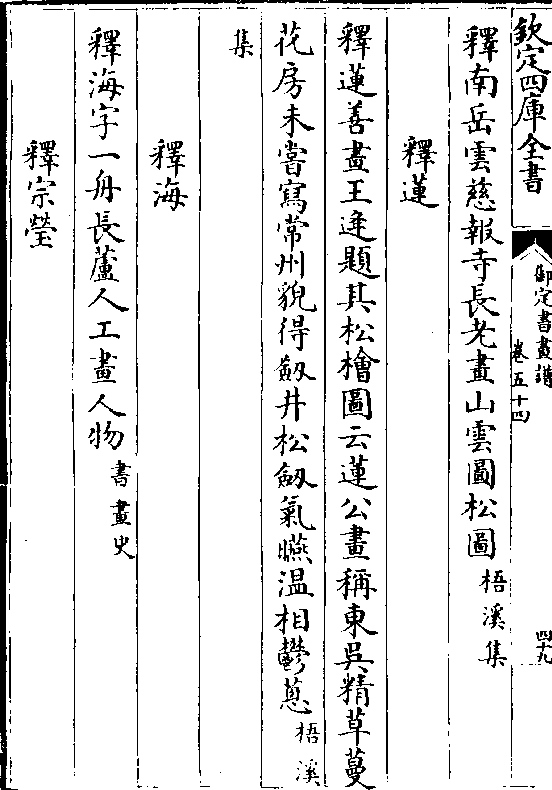 欽定四庫全書
御定書畫譜
卷五十四
四十九
釋南岳雲慈報寺長老畫山雲圖松圖梧溪集
釋蓮
釋蓮善畫王逢題其松檜圖云蓮公畫稱東吳精草蔓
花房未嘗寫常州貌得劔井松劔氣曣温相鬱葱梧溪
集
釋海
釋海字一舟長蘆人工畫人物書畫史
釋宗瑩